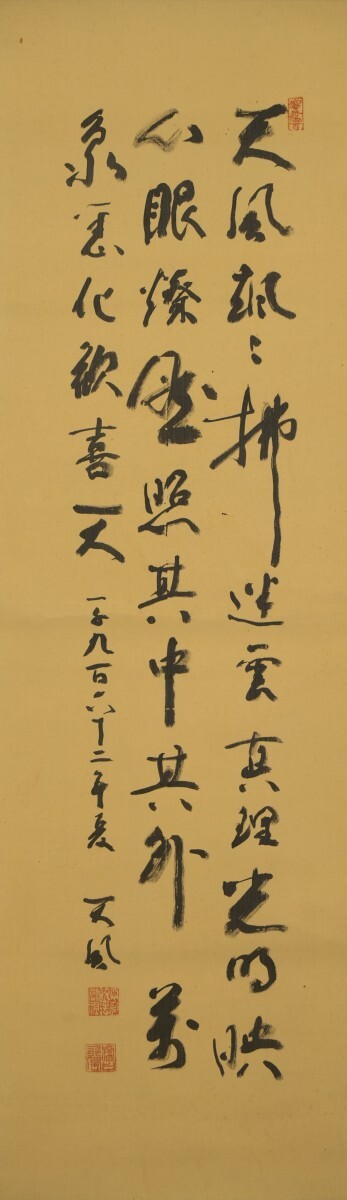 天風颯々拂迷雲真理光明映
心眼燦然照其中其外萬
象悉化歓喜天
一千九百六十二年夏 天風